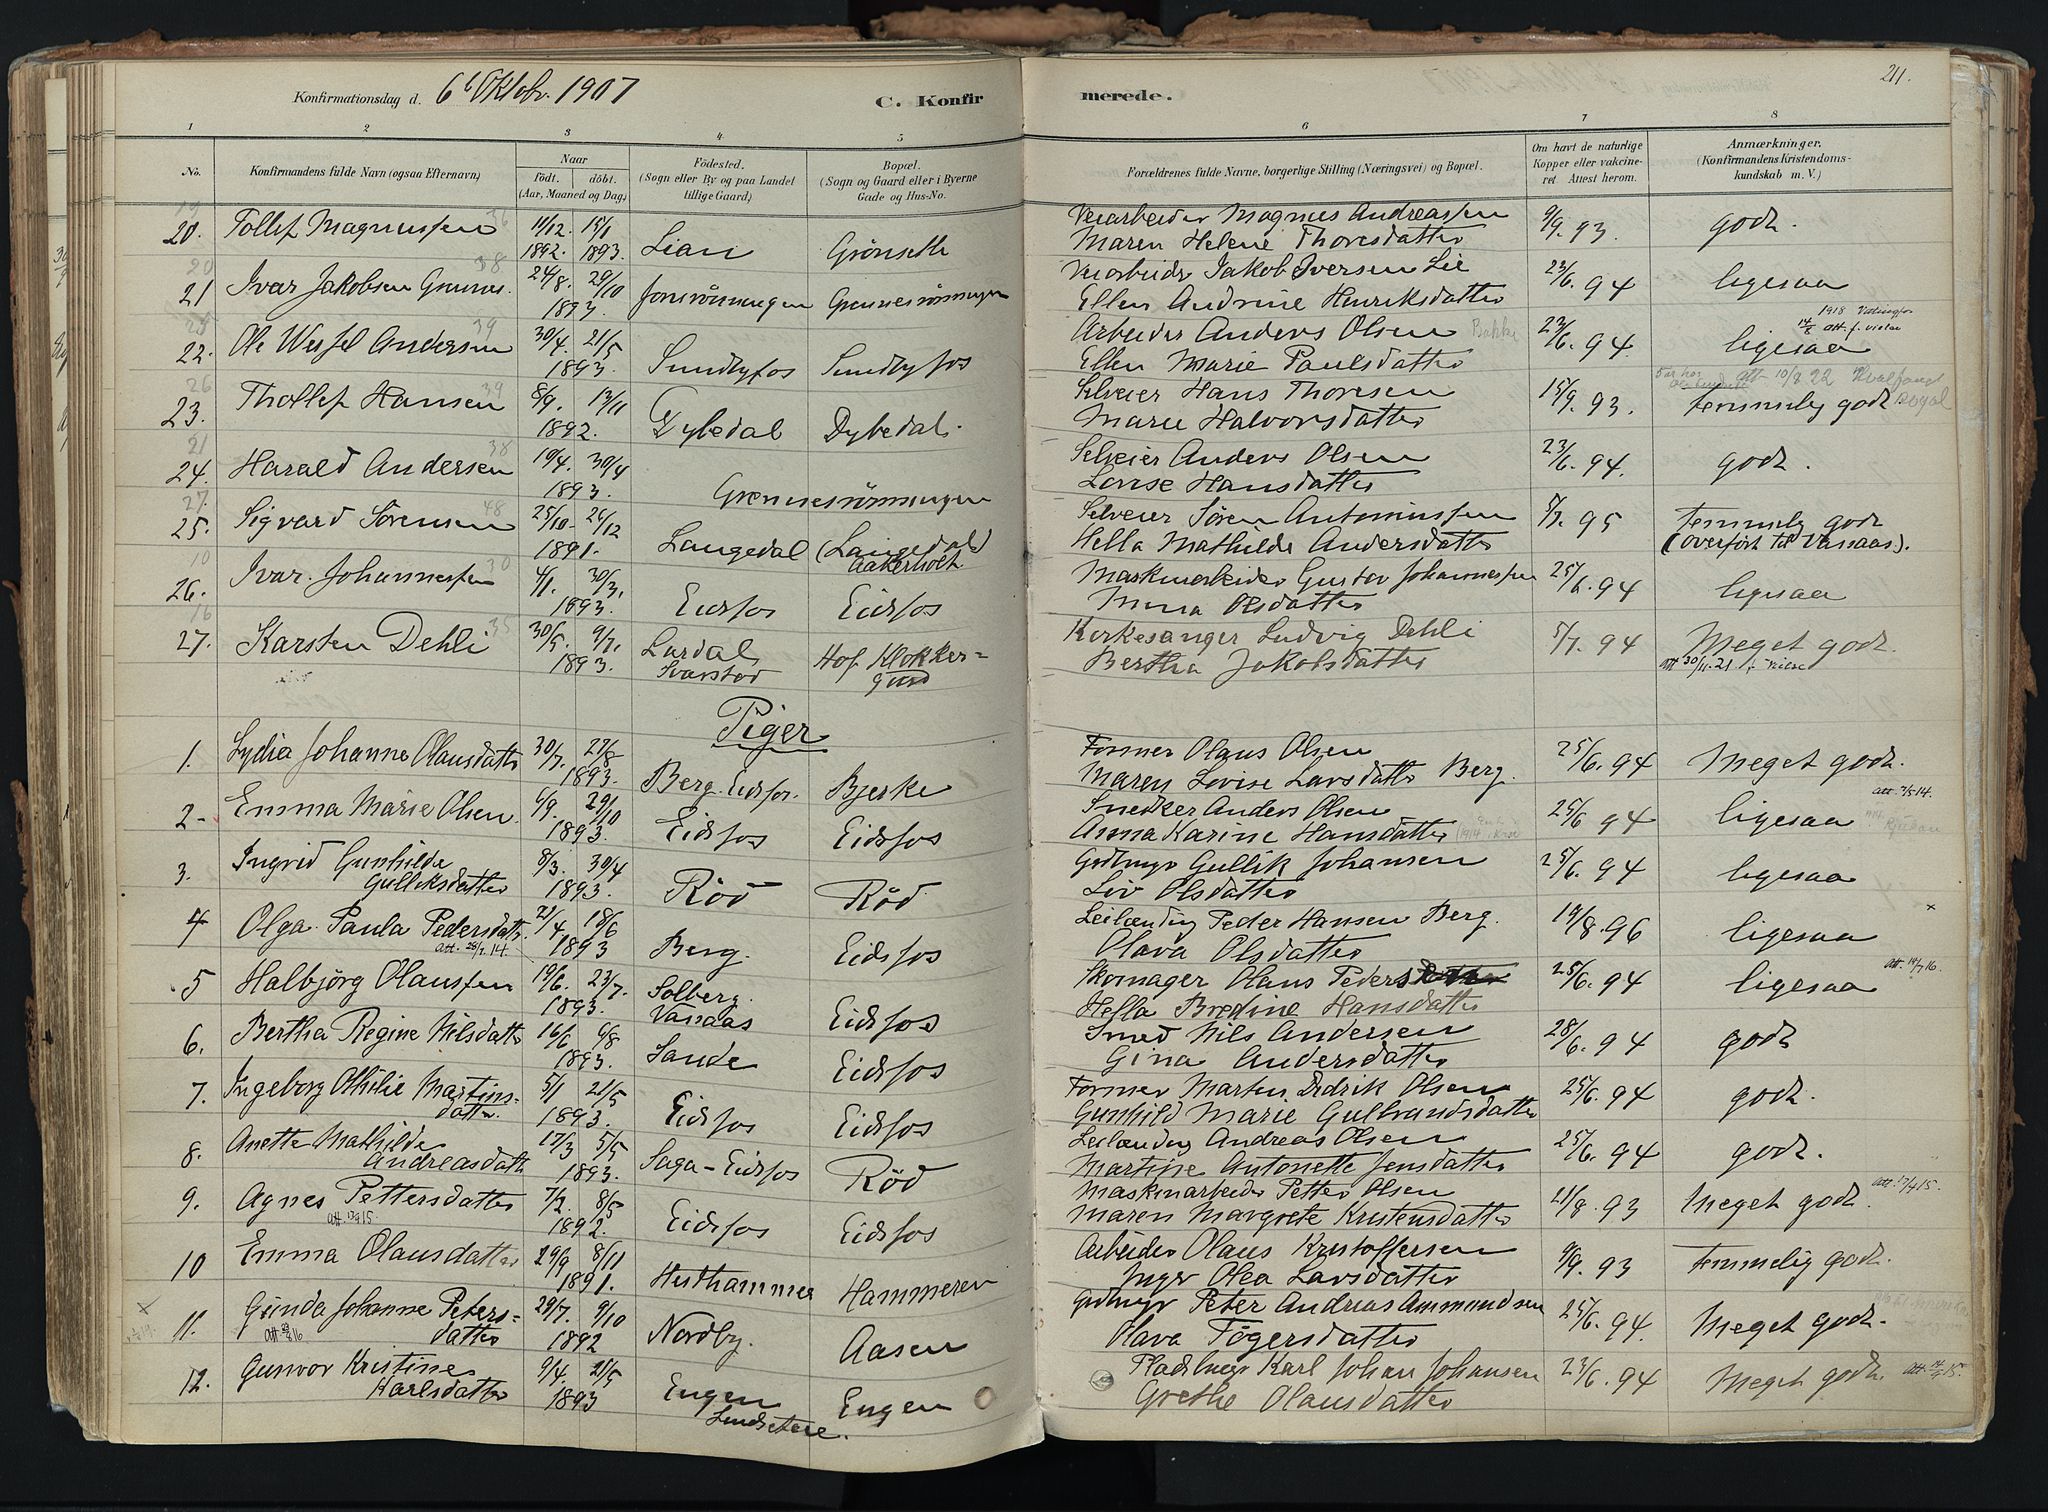 Konfirmationsdag d. 6t Oktobr. 1907
C. Konfir merede.
211.
1 2 3 4 5 6 7 8
No. Konfirmandens fulde Navn (ogsaa Efternavn) Naar Födt. döbt. (Aar, Maaned og Dag) Födested. (Sogn eller By og paa Landet tillige Gaard) Bopæl. (Sogn og Gaard eller i Byerne Gade og Hus-No. Forældrenes fulde Navne, borgerlige Stilling (Næringsvei) og Bopæl. Om havt de naturlige Kopper eller vakcineret Attest herom. Anmærkninger. (Konfirmandens Kristendomskundskab m. V.)
19 36
20. Tollef Magnussen 11/12. 15/1 1892. 1893. Lian Grønsette Veiarbeider Magnus Andreassen 9/9. 93. godt.
Maren Helene Thoresdatter
20 38
21 Ivar Jakobsen Grennes. 24/8. 29/10 1893. Grennesrönningen Veiarbeider Jakob Iversen Lie 23/6. 94 ligesaa
Ellen Andrine Henriksdatter
25 39
22. Ole Wessel Andersen 30/4. 21/5 1893. Sundbyfos Sundbyfos Arbeider Anders Olsen Bakke 23/6. 94. ligesaa
Ellen Marie Paulsdatter
26 39
23. Thollef Hansen 8/9. 13/11 1892. Dybedal Dybedal. Selveier Hans Thoresen 15/9. 93. temmelig godt
Att 10/8.22 Hvalfangst
Marie Halvorsdatter
21 38
24. Harald Andersen 19/4. 30/4 1893. Grennesrönningen Selveier Anders Olsen 23/6. 94. godt.
Lovise Hansdatter
27. 48
25. Sigvard Sörensen 25/10. 26/12 1891. Langedal (Langedal) Aakerholt Selveier Sören Antoniussen 5/7. 95 temmelig godt
Hella Mathilde Andersdatter (overført til Vassaas).
10 30
26. Ivar Johannessen 4/1. 30/3. 1893. Eidsfos Eidsfos Maskinarbeider Gustav Johannessen 25/6. 94 ligesaa
Mina Olsdatter
16 35
27. Karsten Dehli 30/5. 9/7. 1893. Lardal Svarstad Hof Klokkergaard Kirkesanger Ludvig Dehli 5/7. 94 Meget godt.
Bertha Jakobsdatter Att 30/11.21
Piger
1. Lydia Johanne Olausdatter 30/7. 27/8 1893. Berg. Eidsfos. Bjerke Former Olaus Olsen 25/6. 94 Meget godt.
Maren Lovise Larsdatter Berg. Att. 7/5 14.
2- Emma Marie Olsen 6/9. 29/10 1893. Eidsfos Eidsfos Snedker Anders Olsen 25/6 94 ligesaa
Anna Karine Hansdatter
3. Ingrid Gunhilde Gulliksdatter 8/3. 30/4 1893. Röd Röd. Gaardbruger Gullik Johansen 25/6. 94 ligesaa
Liv Olsdatter
4 Olga Paula Pedersdatter 21/4. 18/6 1893 Berg. Eidsfos Leilænding Peder Hansen Berg. 19/8. 96 ligesaa
Att. 28/1.14. Olava Olsdatter
5 Halbjörg Olaussen 19/6. 23/7. 1893. Solberg. Vassaas Eidsfos Skomager Olaus Peders 25/6. 94 ligesaa Att. 19/7 16.
Hella Bredine Hansdatter
6. Bertha Regine Nilsdatter 16/6 6/8 1893. Sande Eidsfos Smed Nils Andersen 28/6. 94 godt
Gina Andersdatter
7. Ingeborg Othilie Martinsdatter. 5/1 21/5 1893. Eidsfos Eidsfos Former Martin Didrik Olsen 25/6. 94 godt.
Gunhild Marie Gulbrandsdatter
8. Anette Mathilde Andreasdatt 17/3 5/5 1893. Saga-Eidsfos Röd Leilænding Andreas Olsen 25/6. 94 godt.
Martine Antonette Jensdatter
9. Agnes Pettersdatter 7/2. 8/5 1892. Eidsfos Eidsfos Maskinarbeider Petter Olsen 21/8. 93 Meget godt. Att. 13/9 15.
Att. 13/9 15 Maren Margrete Kristensdatter
10 Emma Olausdatter 29/9 8/11 1891. Hesthammer Hammeren Arbeider Olaus Kristoffersen 9/9. 93 temmelig godt.
Inger Olea Larsdatter
11. Gunda Johanne Petersdatter 29/7. 9/10 1892 Nordby. Aasen Gaardbruger Peter Andreas Ammundsen 25/6. 94. Meget godt.
Olava Tögersdatter
12. Gunvor Kristine Karlsdatter 9/4. 21/5 1893 Engen Engen Pladsbruger Karl Johan Johansen 23/6. 94 Meget godt. Att. 14/5 15.
Grethe Olausdatter